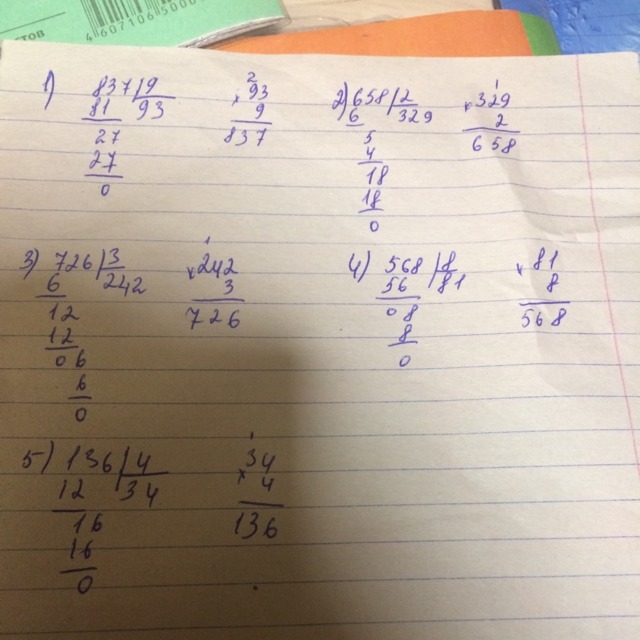 4 607106 5000
1) 837 | 9
81 93
27
27
0
2
× 93
9
837
2) 658 | 2
6 329
5
4
18
18
0
1
× 329
2
658
3) 726 | 3
6 242
12
12
06
6
0
1
× 242
3
726
4) 568 | 8
56 81
08
8
0
× 81
8
568
5) 136 | 4
12 34
16
16
0
1
× 34
4
136